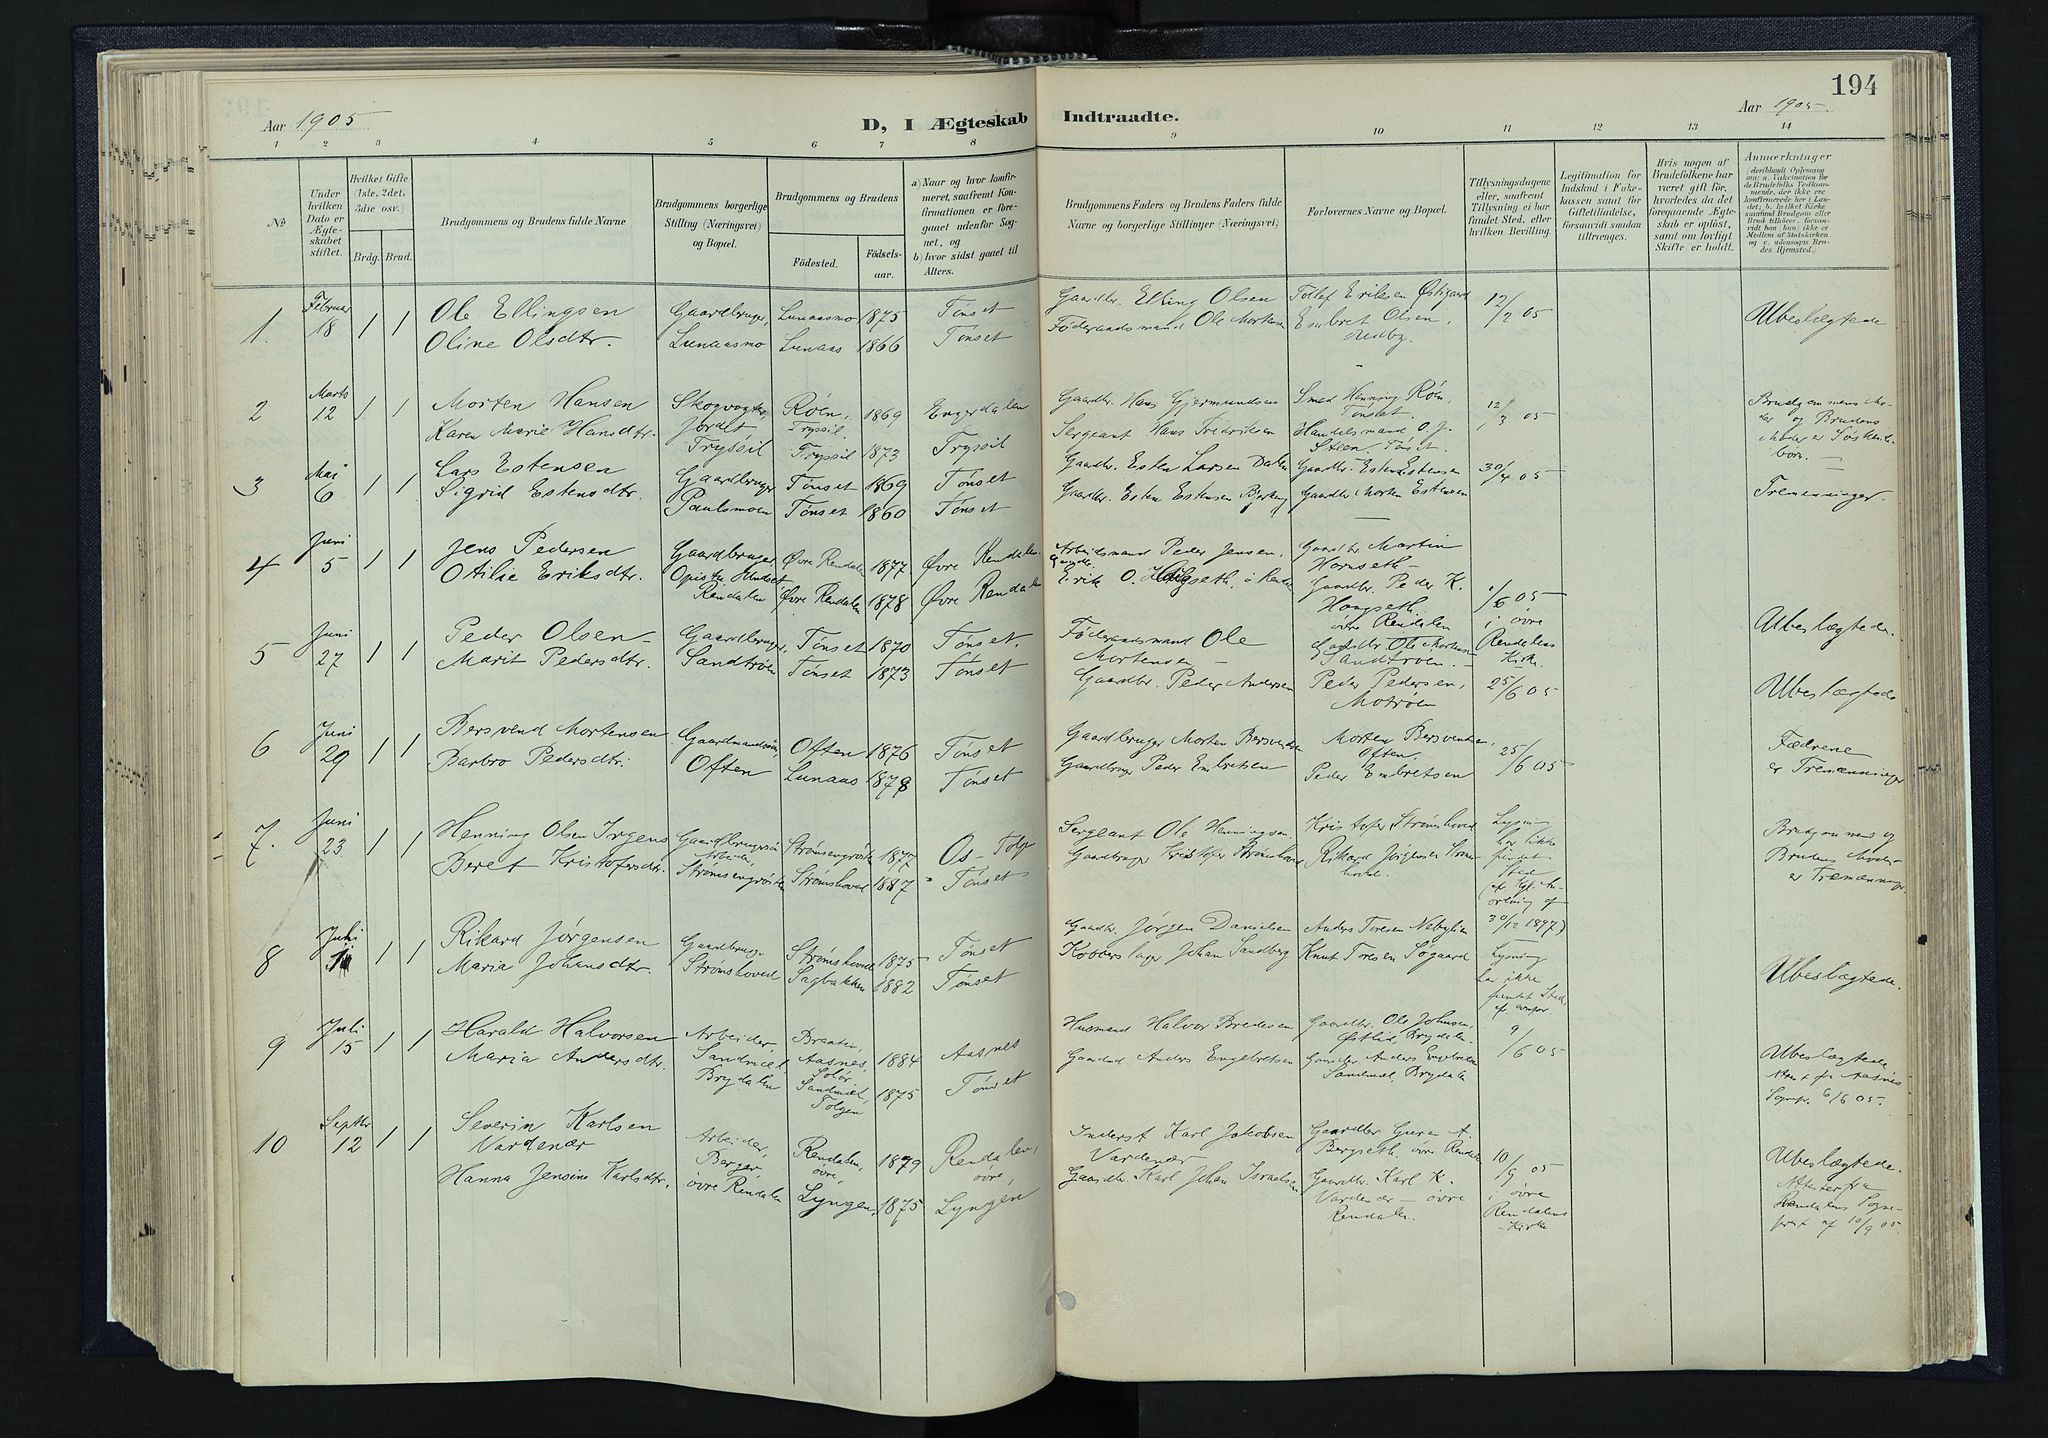 194
Aar 1905
D, I Ægteskab Indtraadte.
Aar 1905.
1 2 3 4 5 6 7 8 9 10 11 12 13 14
№
Under hvilken Dato er Ægteskabet stiftet.
Hvilket Gifte (1ste. 2det. 3die osv.)
Brdg. Brud.
Brudgommens og Brudens fulde Navne
Brudgommens borgerlige Stilling (Næringsvei) og Bopæl.
Brudgommens og Brudens
Fødested.
Fødselsaar.
a) Naar og hvor konfirmeret, saafremt Konfirmationen er foregaaet udenfor Sognet, og
b) hvor sidst gaaet til Alters.
Brudgommens Faders og Brudens Faders fulde Navne og borgerlige Stillinger (Næringsvei)
Forlovernes Navne og Bopæl.
Tillysningsdagene eller, saafremt Tillysning ei har fundet Sted, efter hvilken Bevilling.
Legitimation for Indskud i Enkekassen samt for Giftetilladelse, forsaavidt saadan tiltrænges.
Hvis nogen af Brudefolkene har været gift før, hvorledes da det foregaaende Ægteskab er opløst, samt om lovligt Skifte er holdt.
Anmærkninger
1. Februar 18 1 1
Ole Ellingsen Gaardbruger, Lunaasmo 1875 Tønset
Oline Olsdtr. Lunaasmo Lunaas 1866 Tønset
Gaardbr. Elling Olsen
Føderaadsmand Ole Mortensen
Tollef Eriksen Østigaard
Embret Olsen,
12/2 05
Ubeslægtede
2 Marts 12 1 1
Morten Hansen Skogvogter, Røen, 1869 Engerdalen
Karen Marie Hansdtr. Jordet Tryssil.
Tryssil Tryssil 1873 Tryssil
Gaardbr. Hans Gjermundsen
Sergeant Hans Fredriksen
Smed Henning Røen,
Tønset.
Handelsmand O. J.
Steen. Tønset.
12/3 05
Brudgommens Moder og Brudens
Moder er Søskenbørn.
3 Mai 6 1 1
Lars Estensen Gaardbruger Tønset 1869 Tønset
Sigrid Estensdtr. Paulsmoen Tønset 1860 Tønset
Gaardbr. Esten Larsen Dalen
Gaardbr. Esten Estensen
Gaardbr. Esten Estensen
Gaardbr Morten Estensen
30/4 05
Tremenninger.
4 Juni 5 1 1
Jens Pedersen Gaardbruger Øvre Rendalen 1877 Øvre Rendalen
Otilie Eriksdtr.
Rendalen Øvre Rendalen 1878 Øvre Rendalen
Arbeidsmand Peder Jensen,
Gaardbr. Martin
Hornseth
Gaardbr. Peder K.
Haagseth
øvre Rendalen
/6 05
i øvre
Rendalens
Kirke.
Ubeslægtede.
5 Juni 27 1 1
Peder Olsen Gaardbruger, Tønset 1870 Tønset.
Marit Pedersdtr. Sandtrøen Tønset 1873 Tønset
Føderaadsmand Ole
Mortensen
Gaardbr. Peder Andersen
Gaardbr Ole Mortensen
Sandtrøen.
Peder Pedersen,
Motrøen
25/6 05
Ubeslægtede
6 Juni 29 1 1
Bersvend Mortensen Gaardmandssøn, Often 1876 Tønset
Barbro Pedersdtr. Often Lunaas 1878 Tønset
Gaardbruger Morten Bersvendsen
Gaardbruger Peder Embretsen
Morten Bersvendsen,
Often,
Peder Embretsen
25/6 05
Fædrene
er Tremænninger
7. Juni 23 1 1
Henning Olsen Irgens Strømsengrøsta 1877 Os - Tolgen
Beret Kristofersdtr. Arbeider, Strømsengrøsta Strømshoved 1887 Tønset
Sergeant Ole Henningsen.
Gaardbruger Kristofer Strømshoved
Kristofer Strømshoved
Rikard Jørgensen Strømshoved.
Lysning
har ikke
fundet
Sted
(ef. Kgl. Anordning af
30/12 1897)
Brudgommens og
Brudens Moder
er Tremænninger
8 Juli 1 1
Rikard Jørgensen Gaardbruger Strømshoved 1875 Tønset
Maria Johansdtr. Strømshoved Sagbakken 1882 Tønset
Gaardbr. Jørgen Danielsen
Kobberslager Johan Sandberg
Anders Toresen Nebylien
Knut Toresen Søgaard
Lysning
har ikke
fundet Sted,
Ubeslægtede.
9 Juli 15 1 1
Harald Halvorsen Arbeider Braaten, Aasnes, Solør 1884 Aasnes
Maria Andersdtr. Sandmæl, Brydalen Sandmæl, Tolgen 1875 Tønset
Husmand Halvor Bredesen
Gaardbr. Anders Engebretsen
Gaardbr. Ole Johnsen,
Østlid, Brydalen
Gaardbr. Anders Engebretsen
Sandmæl, Brydalen
9/6 05
Ubeslægtede
Attest fra Aasnes
Sognepr. 6/6 05.
10 Septbr 12 1 1
Severin Karlsen Arbeider, Rendalen, øvre 1879 Rendalen, øvre
Vardenær Berger
Hanna Jensine Karlsdtr. øvre Rendalen Lyngen, 1875 Lyngen
Inderst Karl Jakobsen
Vardenær
Gaardbr. Karl Johan Israelsen
Gaardbr Guren A.
Bergseth, øvre Rendalen
Gaardbr. Karl K.
Vardenær - øvre
Rendalen.
10/9 05
i øvre
Rendalens
Kirke
Ubeslægtede.
Attester fra
Rendalens Sogneprest af 10/9 05.